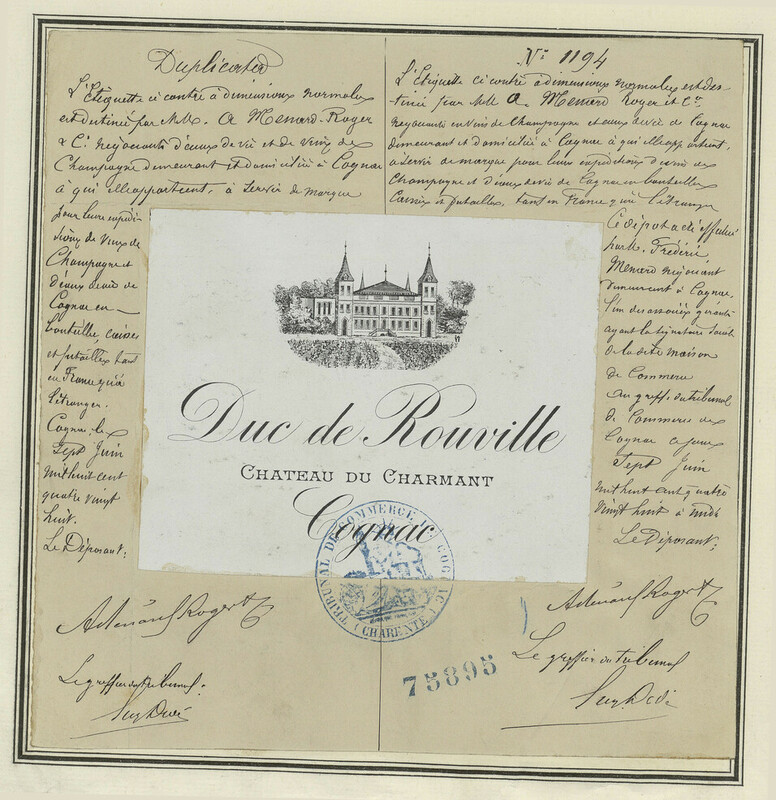 Duplicata
L'Etiquette ci contre à dimensions normales
est destinée par MM. A Menard-Roger
& Cie Negociants d'eaux de vie et de Vins de
Champagne demeurant et domicilié à Cognac
à qui elle appartient, à servir de marque
pour leur expédi-
tions de Vins de
Champagne et
d'eaux de vie de
Cognac en
bouteille, caisses
et futailles tant
en France qu'à
l'étranger.
Cognac le
Sept Juin
mil huit cent
quatre vingt
huit.
Le Déposant:
A Menard Roger & Cie
Le greffier du tribunal:
No 1194
L'Etiquette ci contre à dimensions normales est des-
tinée par MM A. Menard Roger et Cie
Negociants en vins de Champagne et eaux de vie de Cognac
demeurant et domiciliés à Cognac à qui elle appartient,
à servir de marque pour leurs expéditions de vins de
Champagne et d'eaux de vie de Cognac en bouteilles
Caisses et futailles tant en France qu'à l'étranger
Ce dépôt a été effectué
par M. Frédéric
Menard négociant
demeurant à Cognac,
l'un des associés gérants
ayant la signature sociale
de la dite maison
de Commerce
au greffe du tribunal
de Commerce de
Cognac ce jour
Sept Juin
mil huit cent quatre
vingt huit à midi
Le Déposant:
A Menard Roger & Cie
Le greffier du tribunal
Duc de Rouville
CHATEAU DU CHARMANT
Cognac
TRIBUNAL DE COMMERCE DE COGNAC
(CHARENTE)
75895